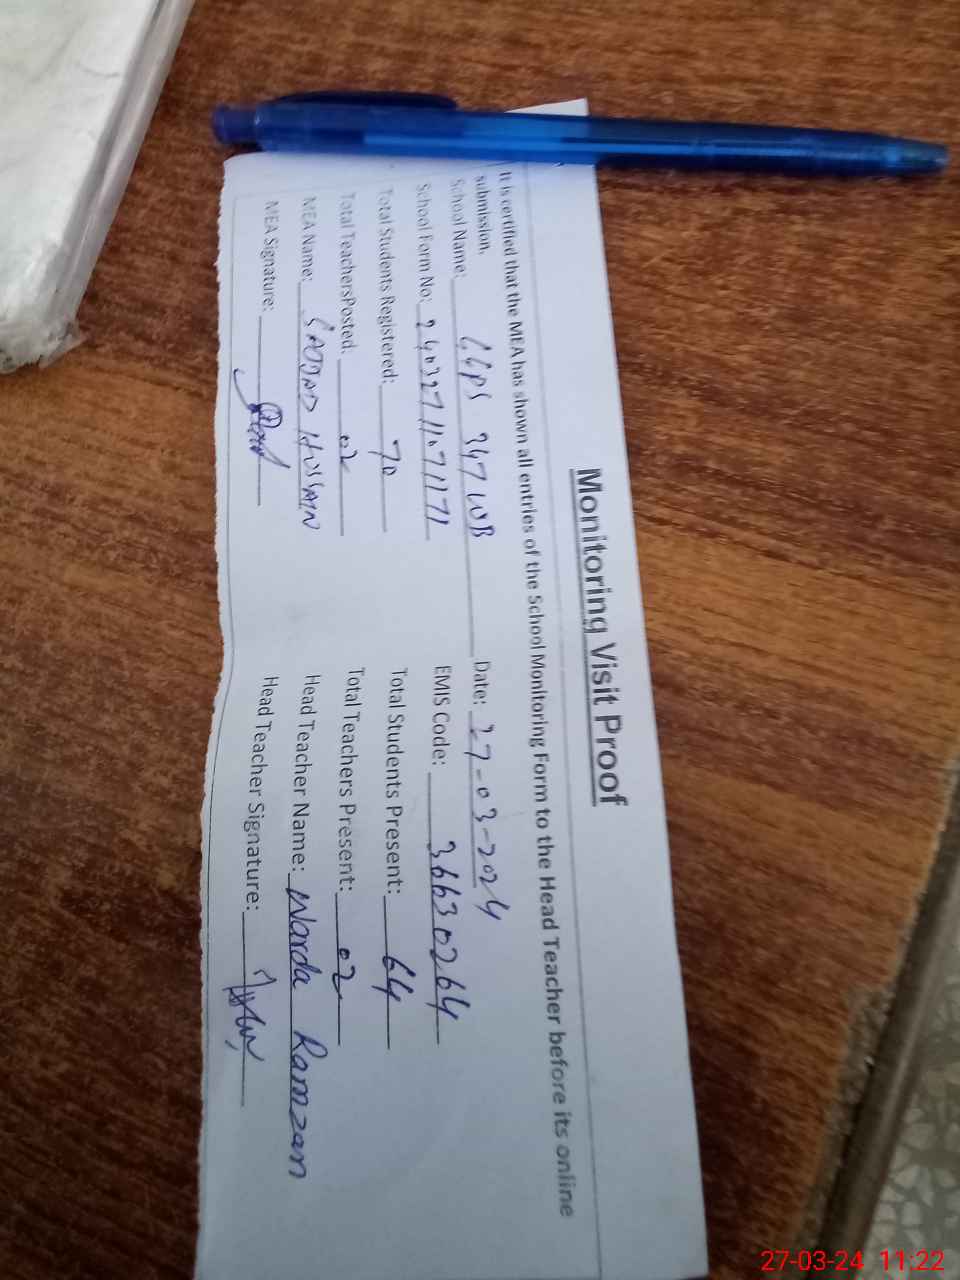 Monitoring Visit Proof
It is certified that the MEA has shown all entries of the School Monitoring Form to the Head Teacher before its online
submission.
School Name: GGPS 347 WB Date: 27-03-2024
School Form No: EMIS Code: 36630264
Total Students Registered: 70 Total Students Present: 64
Total TeachersPosted: 02 Total Teachers Present: 02
MEA Name: SAJJAD HUSSAIN Head Teacher Name: Warda Ramzan
MEA Signature: Head Teacher Signature:
27-03-24 11:22